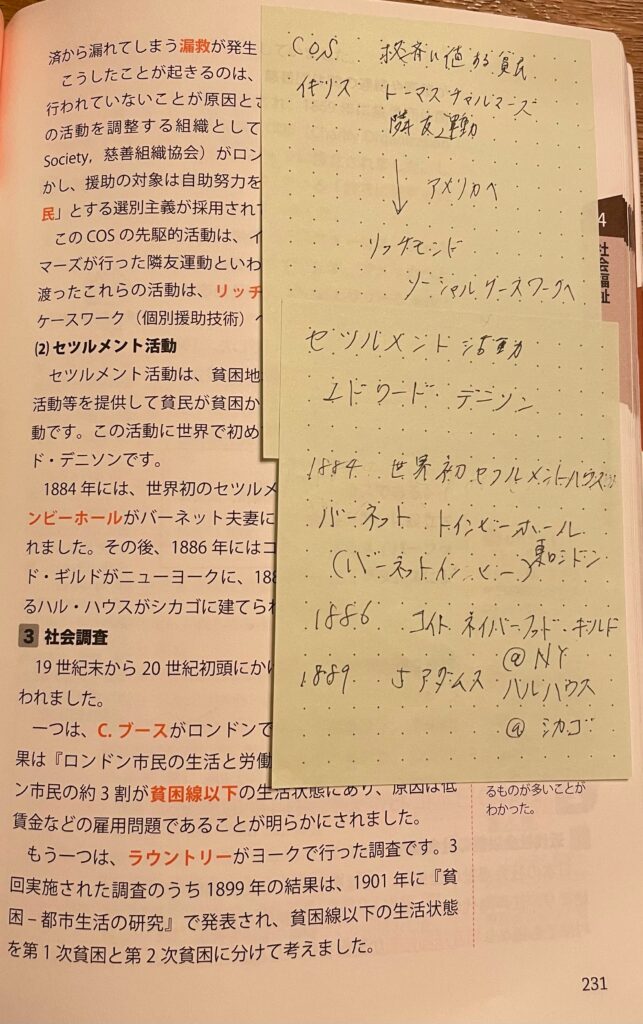 済から漏れてしまう漏救が発生
こうしたことが起きるのは、
行われていないことが原因とさ
の活動を調整する組織として
Society，慈善組織協会）がロン
かし、援助の対象は自助努力を
民」とする選別主義が採用されて
このCOSの先駆的活動は、イ
マーズが行った隣友運動といわ
渡ったこれらの活動は、リッチ
ケースワーク（個別援助技術）へ
(2) セツルメント活動
セツルメント活動は、貧困地
活動等を提供して貧民が貧困か
動です。この活動に世界で初め
ド・デニソンです。
1884年には、世界初のセツルメ
ンビーホールがバーネット夫妻に
れました。その後、1886年にはコ
ド・ギルドがニューヨークに、188
るハル・ハウスがシカゴに建てられ
3 社会調査
19世紀末から20世紀初頭にか
われました。
一つは、C. ブースがロンドンで
果は『ロンドン市民の生活と労働
ン市民の約3割が貧困線以下の生活状態にあり、原因は低
賃金などの雇用問題であることが明らかにされました。
もう一つは、ラウントリーがヨークで行った調査です。3
回実施された調査のうち1899年の結果は、1901年に『貧
困－都市生活の研究』で発表され、貧困線以下の生活状態
を第1次貧困と第2次貧困に分けて考えました。
COS 救済に値する貧民
イギリス トーマスチャルマーズ
隣友運動
↓ アメリカへ
リッチモンド
ソーシャルケースワークへ
セツルメント活動
エドワード デニソン
1884 世界初セツルメントハウス
バーネット トインビーホール
（バーネットインビー）東ロンドン
1886 コイト ネイバーフッド・ギルド
@NY
1889 J アダムス ハルハウス
@ シカゴ
4
社会福祉
るものが多いことが
わかった。
231